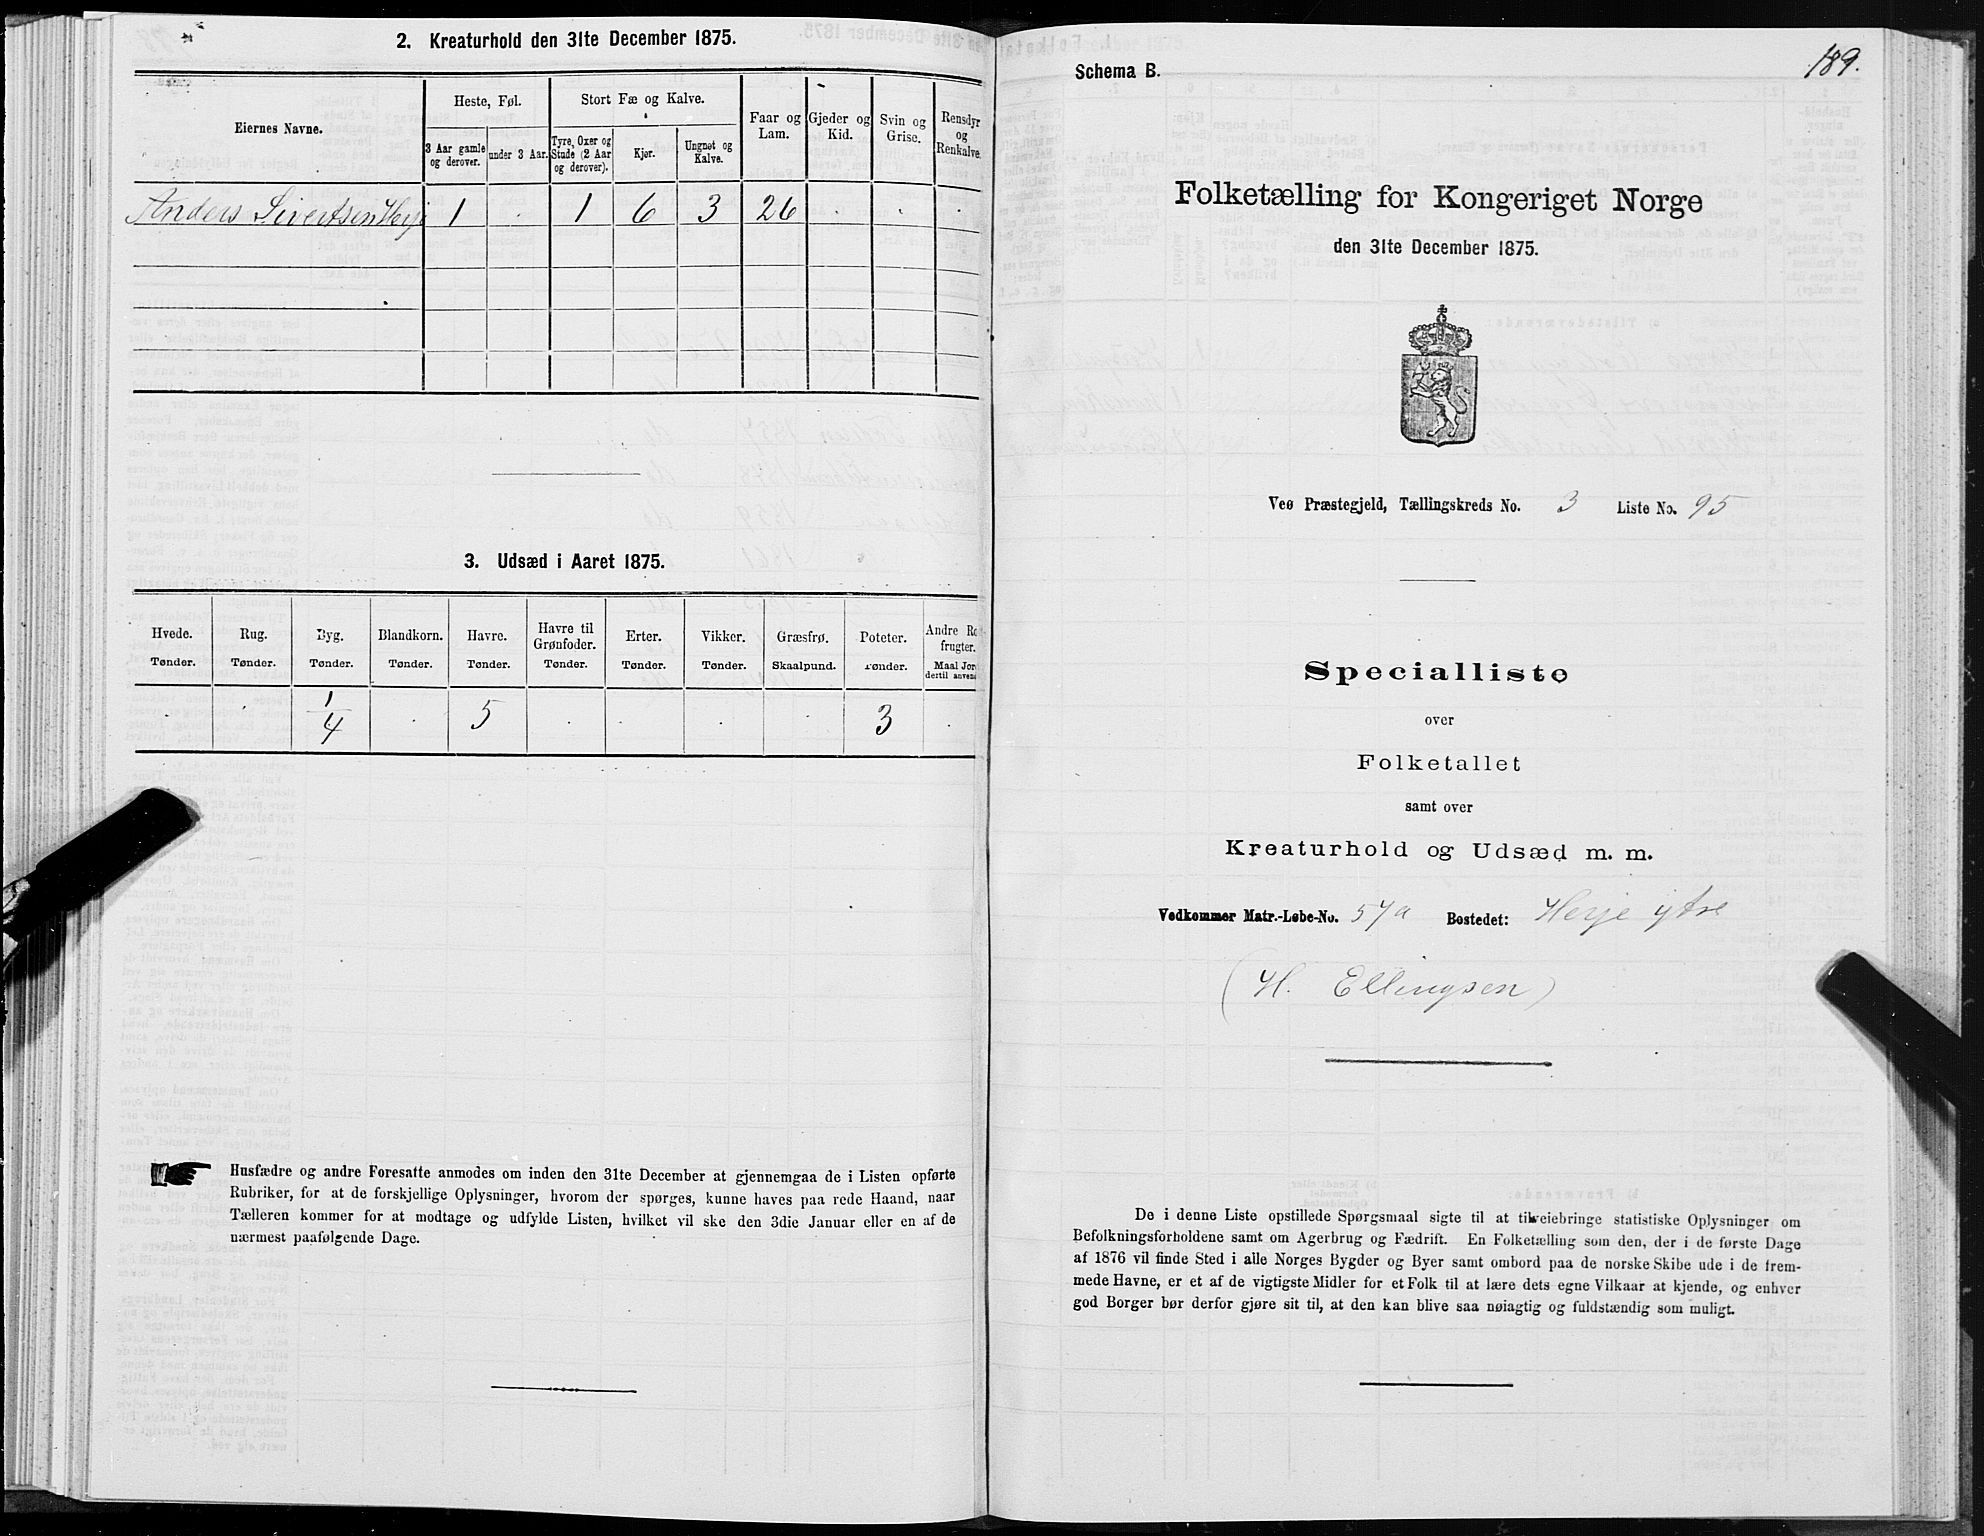 2. Kreaturhold den 31te December 1875.
Eiernes Navne.
Heste, Føl.
Stort Fæ og Kalve.
Faar og Lam.
Gjeder og Kid.
Svin og Grise.
Rensdyr og Renkalve.
3 Aar gamle og derover.
under 3 Aar.
Tyre, Oxer og Stude (2 Aar og derover).
Kjør.
Ungnøt og Kalve.
Anders Sivertsen Herje 1 . 1 6 3 26 . . .
3. Udsæd i Aaret 1875.
Hvede. Rug. Byg. Blandkorn. Havre. Havre til Grønfoder. Erter. Vikker. Græsfrø. Poteter. Andre Ro frugter.
Tønder. Tønder. Tønder. Tønder. Tønder. Tønder. Tønder. Tønder. Skaalpund. Tønder. Maal Jor dertil anven
. . 1/4 . 5 . . . . 3 .
Husfædre og andre Foresatte anmodes om inden den 31te December at gjennemgaa de i Listen opførte
Rubriker, for at de forskjellige Oplysninger, hvorom der spørges, kunne haves paa rede Haand, naar
Tælleren kommer for at modtage og udfylde Listen, hvilket vil ske den 3die Januar eller en af de
nærmest paafølgende Dage.
Schema B.
189.
Folketælling for Kongeriget Norge
den 31te December 1875.
Veø Præstegjeld, Tællingskreds No. 3 Liste No. 95
Specialliste
over
Folketallet
samt over
Kreaturhold og Udsæd m. m.
Vedkommer Matr.-Løbe-No. 57a Bostedet: Herje ytre
(H. Ellingsen)
De i denne Liste opstillede Spørgsmaal sigte til at tilveiebringe statistiske Oplysninger om
Befolkningsforholdene samt om Agerbrug og Fædrift. En Folketælling som den, der i de første Dage
af 1876 vil finde Sted i alle Norges Bygder og Byer samt ombord paa de norske Skibe ude i de frem-
mede Havne, er et af de vigtigste Midler for et Folk til at lære dets egne Vilkaar at kjende, og enhver
god Borger bør derfor gjøre sit til, at den kan blive saa nøiagtig og fuldstændig som muligt.